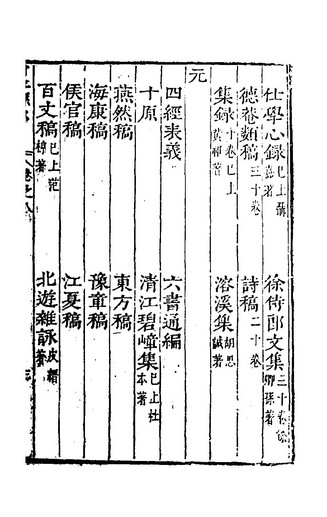 仕學心録巳上龔 著 徐侍郎文集三十卷徐 著
德菴類稿三十卷 詩稿二十卷
集録十卷巳上黄 著 溶溪集胡思誠著
元
四經表義 六書通編
十原 清江碧嶂集巳上杜本著
燕然稿 東方稿
海康稿 豫章稿
侯官稿 江夏稿
百丈稿巳上范梈著 北遊雜詠皮 著